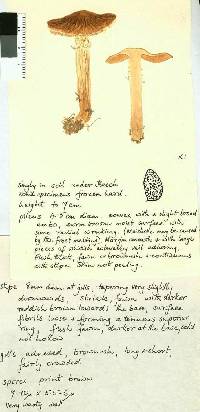 x 1
Singly in soil under Beech
solid specimens frozen hard.
height to 7 cm.
pileus to 5 cm diam convex with a slight broad
umbo, warm brown moist surface with
some radial wrinkling. (Which may be caused
by the frost melting). Margin smooth with large
pieces of whitish veil adhering.
flesh thick, fawn & continuous
with stipe. Skin not peeling.
stipe 8mm diam at gills, tapering very slightly
downwards, fawn with darker
reddish brown towards the base, surface
fibrils forming a tenuous superior
ring, flesh fawn, darker at the base, solid
not hollow
gills adnexed, brownish, long & short,
fairly crowded.
spores print brown
very warty